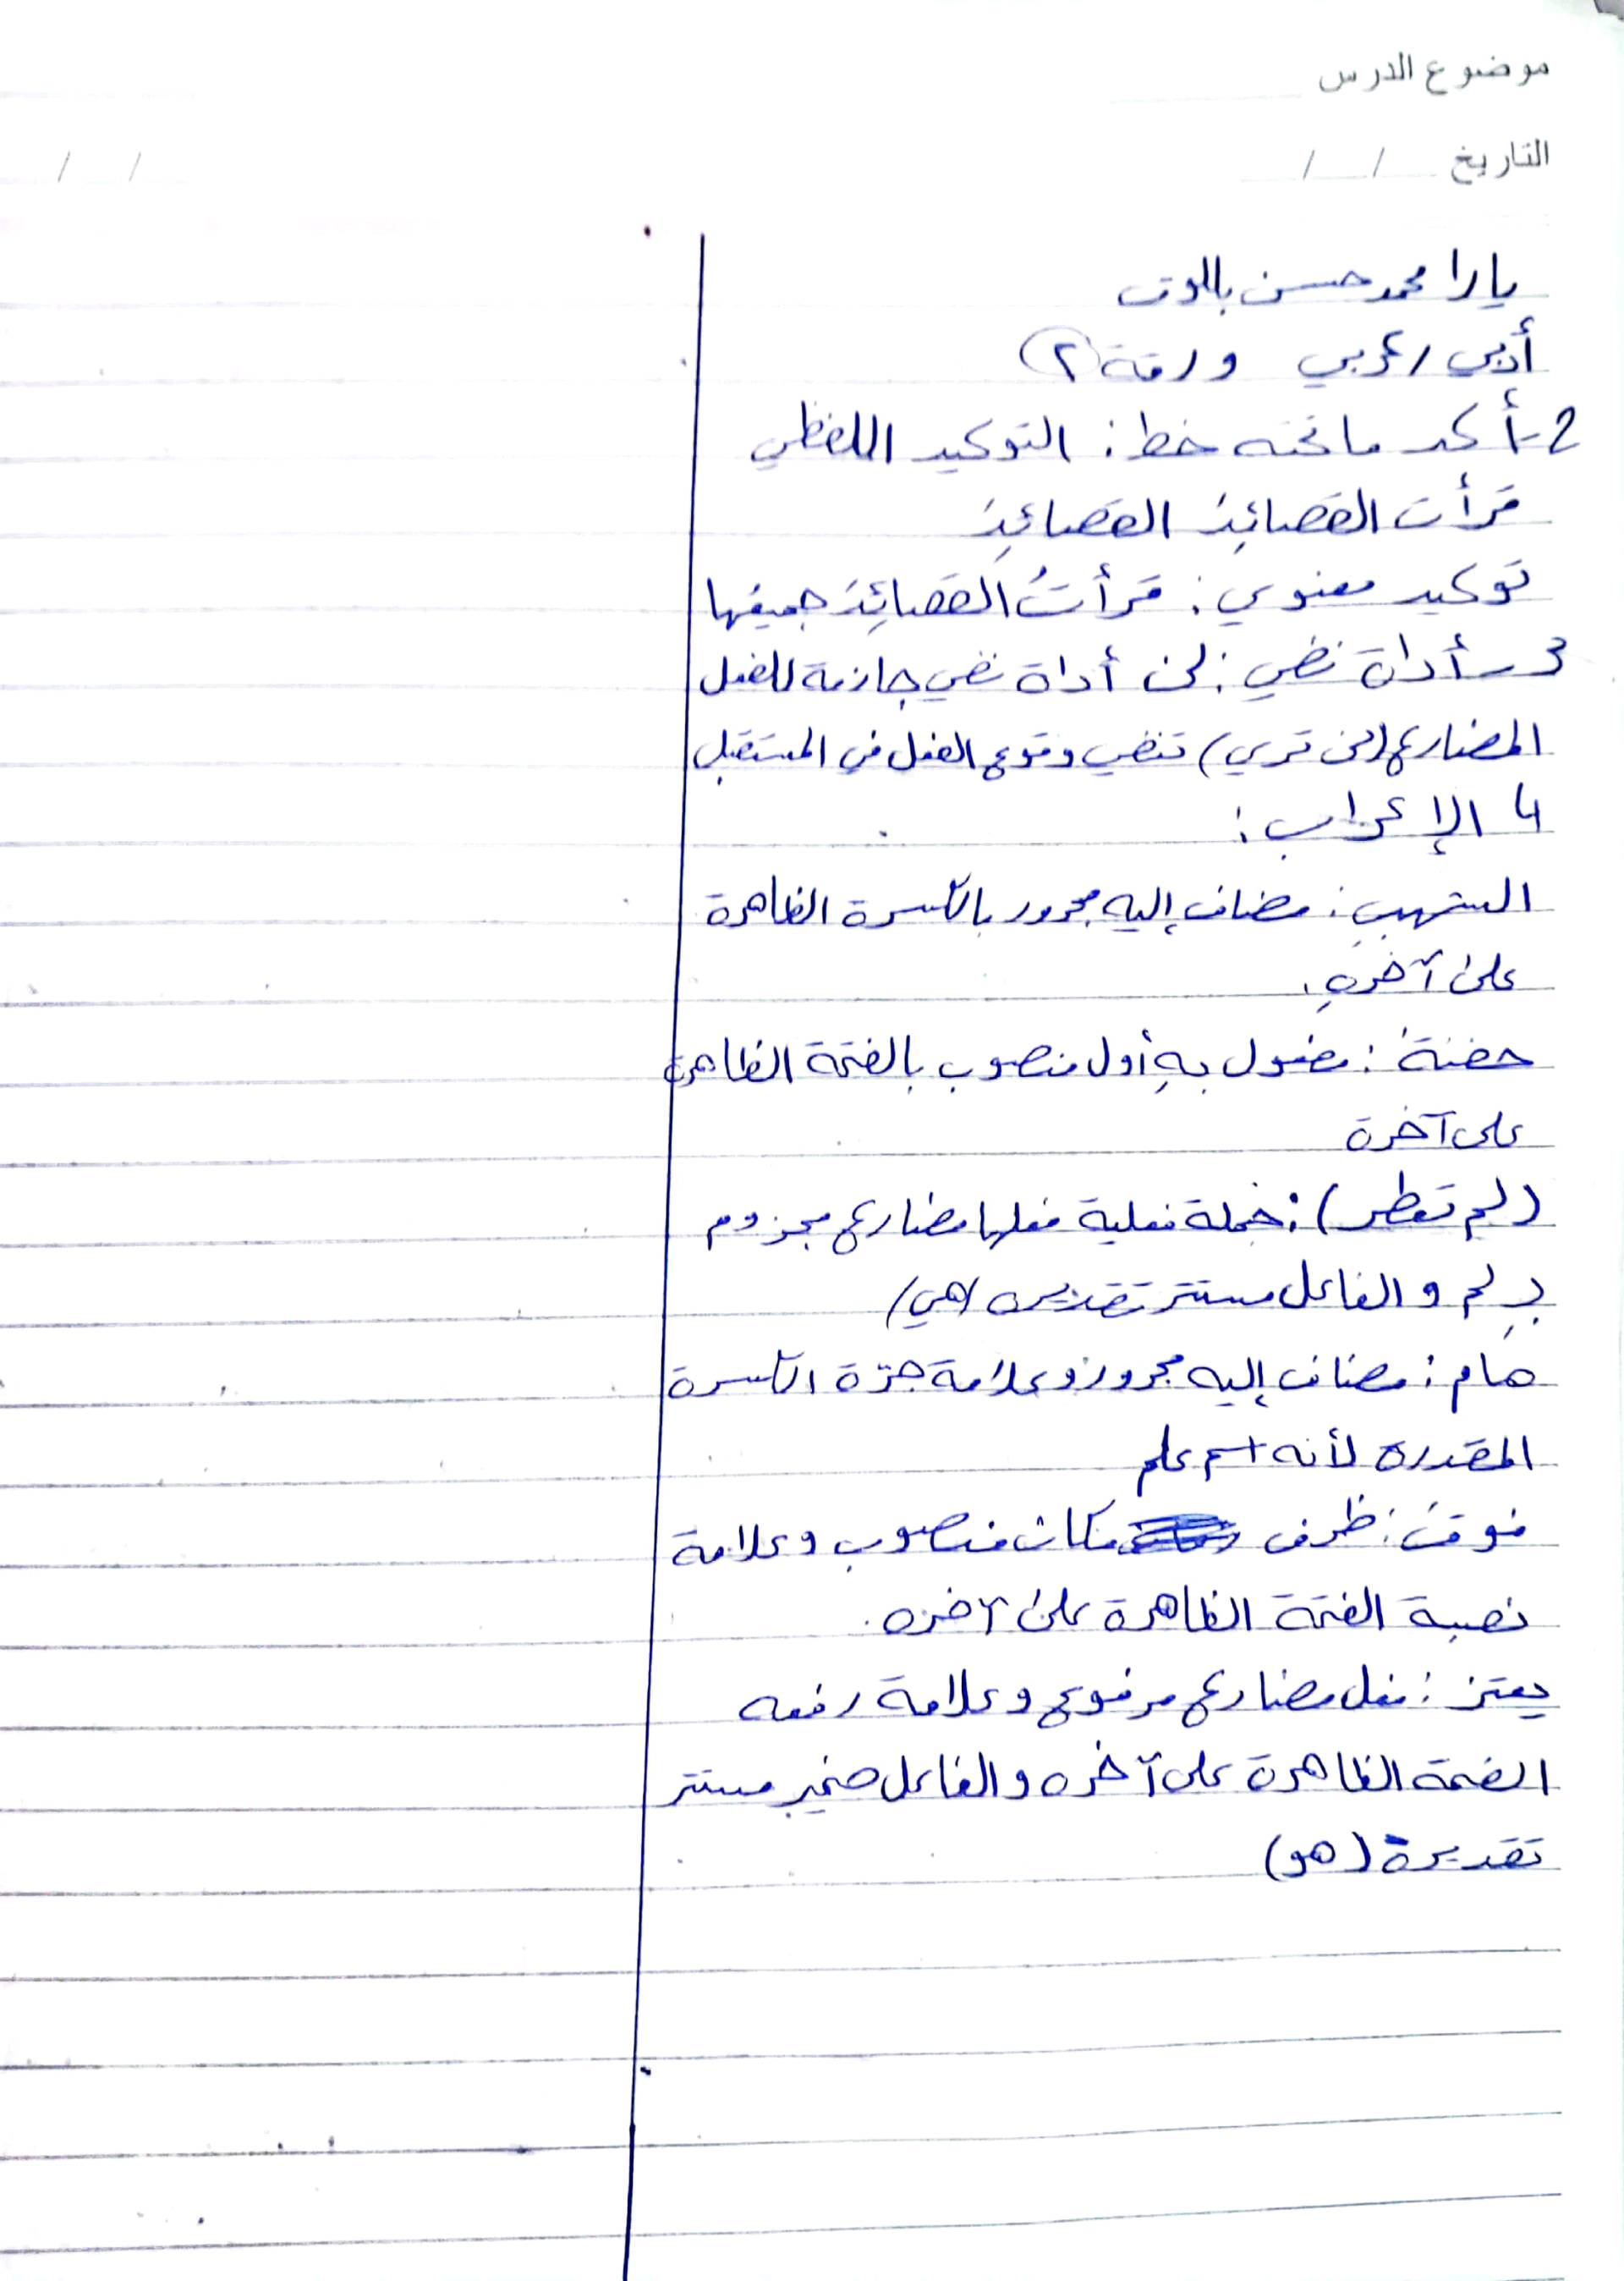 موضوع الدرس
التاريخ / /
/ /
يارا محمد حسن بالوت
أدبي / عربي ورقة ٢
2- أكد ما تحته خط: التوكيد اللفظي
قرأت القصائِدَ القصائِدَ
توكيد معنوي: قرأتُ القصائِدَ جميعَها
3- أداة نفي: لن أداة نفي جازمة للفعل
المضارع (لن تري) تنفي وقوع الفعل في المستقبل
4 الإعراب:
الشهبِ: مضاف إليه مجرور بالكسرة الظاهرة
على آخرهِ.
حفنةَ: مفعول بهِ أول منصوب بالفتحة الظاهرة
على آخرة
(لم تعطر): جملة فعلية فعلها مضارع مجزوم
بِـ لم و الفاعل مستتر تقديره (هي)
هام: مضاف إليه مجرور وعلامة جرّة الكسرة
المقدرة لأنه اسم علم
فوقَ: ظرف مكان منصوب وعلامة
نصبة الفتحة الظاهرة على آخره.
يعتز: فعل مضارع مرفوع وعلامة رفعه
الضمة الظاهرة على آخره والفاعل ضمير مستتر
تقديرة (هو)